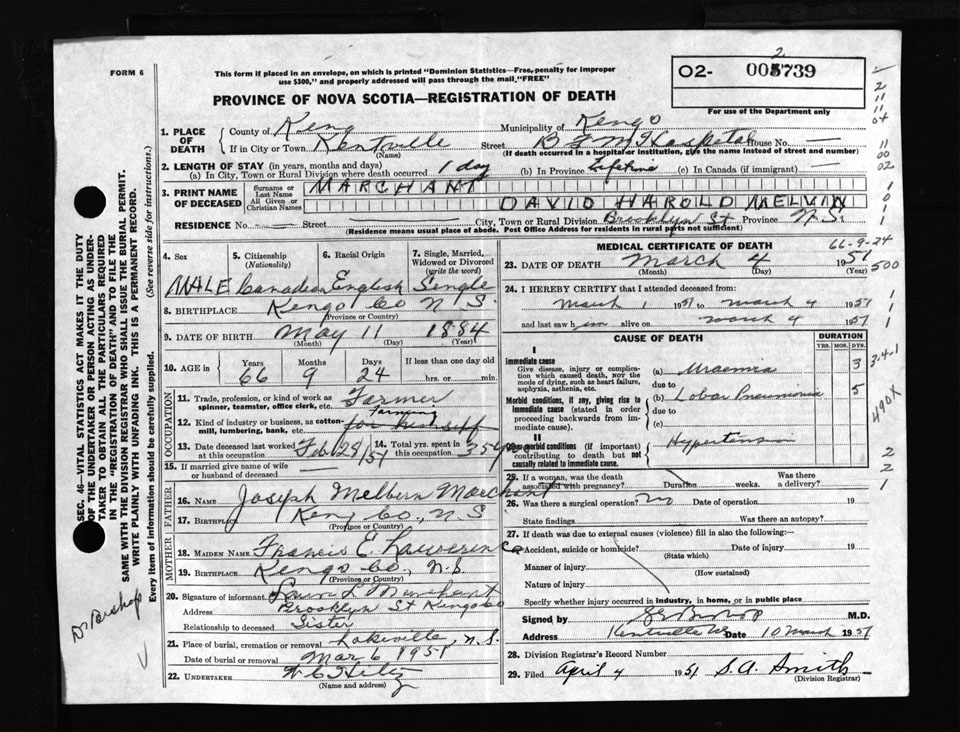 FORM 6
This form if placed in an envelope, on which is printed "Dominion Statistics—Free, penalty for improper
use $300," and properly addressed will pass through the mail "FREE"
02- 005739
2
For use of the Department only
PROVINCE OF NOVA SCOTIA—REGISTRATION OF DEATH
1. PLACE OF DEATH
County of Kings Municipality of Kings
If in City or Town Kentville Street B F M Hospital House No.
(Name) (If death occurred in a hospital or institution, give the name instead of street and number)
2. LENGTH OF STAY (in years, months and days)
(a) In City, Town or Rural Division where death occurred 1 day (b) In Province Lifetime (c) In Canada (if immigrant) —
3. PRINT NAME OF DECEASED
Surname or Last Name MARCHANT
All Given or Christian Names DAVID HAROLD MELVIN
RESIDENCE No. — Street — City, Town or Rural Division Brooklyn St Province N.S.
(Residence means usual place of abode. Post Office Address for residents in rural parts not sufficient)
4. Sex MALE
5. Citizenship (Nationality) Canadian
6. Racial Origin English
7. Single, Married, Widowed or Divorced (write the word) Single
8. BIRTHPLACE Kings Co N.S.
(Province or Country)
9. DATE OF BIRTH May 11 1884
(Month) (Day) (Year)
10. AGE in Years Months Days If less than one day old
66 9 24 hrs. or min.
OCCUPATION
11. Trade, profession or kind of work as spinner, teamster, office clerk, etc. Farmer
12. Kind of industry or business, as cotton-mill, lumbering, bank, etc. Farming
for himself
13. Date deceased last worked at this occupation Feb 28/51
14. Total yrs. spent in this occupation 35 yrs
15. If married give name of wife or husband of deceased —
FATHER
16. NAME Joseph Melbern Marchant
17. BIRTHPLACE Kings Co., N.S.
(Province or Country)
MOTHER
18. MAIDEN NAME Francis E. Lawerence
19. BIRTHPLACE Kings Co, N.S.
(Province or Country)
20. Signature of informant Marchant
Address Brooklyn St Kings Co
Relationship to deceased Sister
21. Place of burial, cremation or removal Lakeville, N.S.
Date of burial or removal Mar 6 1951
22. UNDERTAKER W C Hiltz
(Name and address)
MEDICAL CERTIFICATE OF DEATH
66-9-24
23. DATE OF DEATH March 4 1951
(Month) (Day) (Year)
24. I HEREBY CERTIFY that I attended deceased from:
March 1 1951 to March 4 1951
and last saw him alive on March 4 1951
CAUSE OF DEATH
DURATION
YRS. MOS. DYS.
I
Immediate cause
Give disease, injury or complication which caused death, not the mode of dying, such as heart failure, asphyxia, asthenia, etc.
(a) Uraemia 3
due to
Morbid conditions, if any, giving rise to immediate cause (stated in order proceeding backwards from immediate cause).
(b) Lobar Pneumonia 5
due to
(c)
II
Other morbid conditions (if important) contributing to death but not causally related to immediate cause.
Hypertension
25. If a woman, was the death associated with pregnancy? Duration weeks. Was there a delivery?
26. Was there a surgical operation? No Date of operation 19
State findings Was there an autopsy?
27. If death was due to external causes (violence) fill in also the following:
Accident, suicide or homicide? Date of injury 19
(State which)
Manner of injury
(How sustained)
Nature of injury
Specify whether injury occurred in industry, in home, or in public place
Signed by M.D.
Address Kentville NS Date 10 March 1951
28. Division Registrar's Record Number
29. Filed April 4 1951 S.A. Smith
(Division Registrar)
SEC. 46—VITAL STATISTICS ACT MAKES IT THE DUTY
OF THE UNDERTAKER OR PERSON ACTING AS UNDER-
TAKER TO OBTAIN ALL THE PARTICULARS REQUIRED
IN THE "REGISTRATION OF DEATH" AND TO FILE THE
SAME WITH THE DIVISION REGISTRAR WHO SHALL ISSUE THE BURIAL PERMIT.
WRITE PLAINLY WITH UNFADING INK. THIS IS A PERMANENT RECORD.
Every item of information should be carefully supplied. (See reverse side for instructions.)
Dr Bishop
2
11
11
04
11
00
02
1
0
1
500
1
1
1
3-4-1
490X
2
2
1